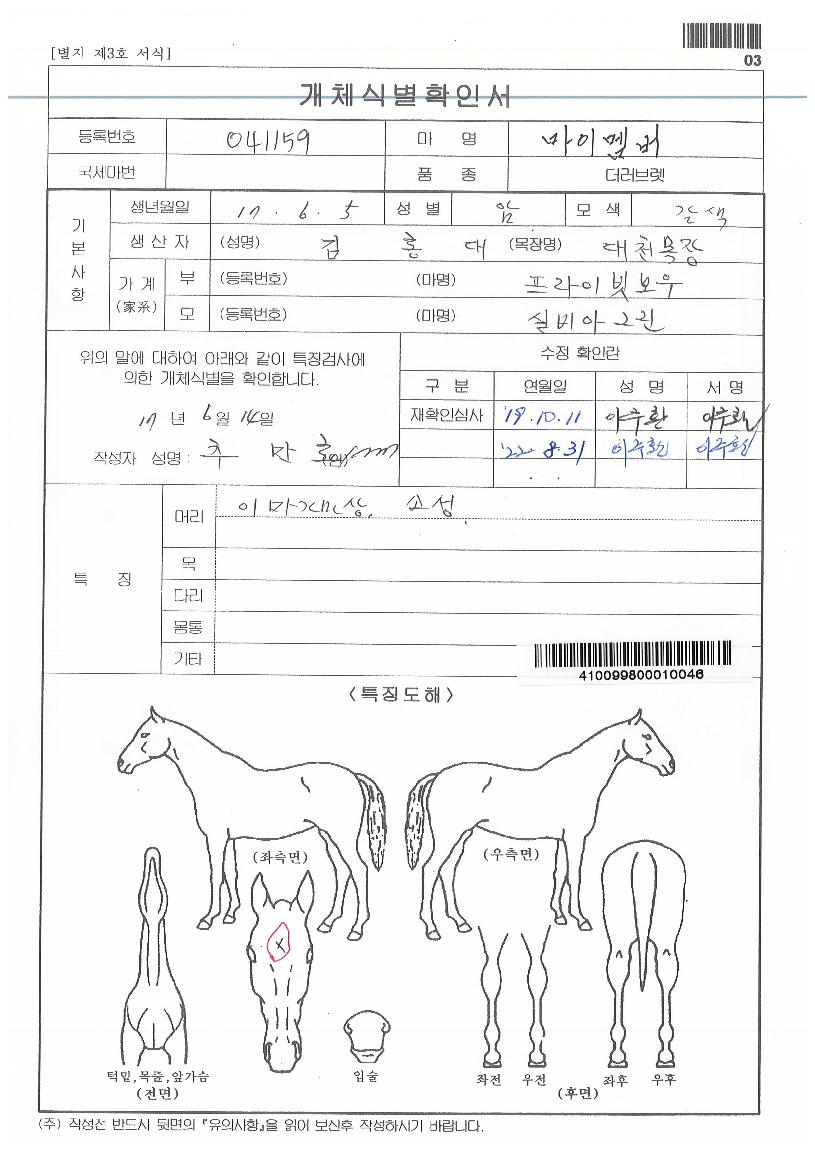 [별지 제3호 서식]
03
개체식별확인서
등록번호 041159 마 명 마이멤버
국세마번 품 종 더러브렛
기본사항
생년월일 17 . 6 . 5 성 별 암 모 색 갈색
생 산 자 (성명) 김 홍 대 (목장명) 대천목장
가 계 (家系) 부 (등록번호) (마명) 프라이빗보우
모 (등록번호) (마명) 실비아그린
위의 말에 대하여 아래와 같이 특징검사에
의한 개체식별을 확인합니다.
17 년 6 월 14 일
작성자 성명 : 추 만 호
수정 확인란
구 분 연월일 성 명 서 명
재확인심사 '19.10.11 이주환 이주환
'22 8.31
. .
특 징
머리 이마 소성.
목
다리
몸통
기타
410099800010046
<특징도해>
(좌측면) (우측면)
x
턱밑,목줄,앞가슴
(전면)
입술
좌전 우전 좌후 우후
(후면)
(주) 작성선 반드시 뒷면의 『유의사항』을 읽어 보신후 작성하시기 바랍니다.